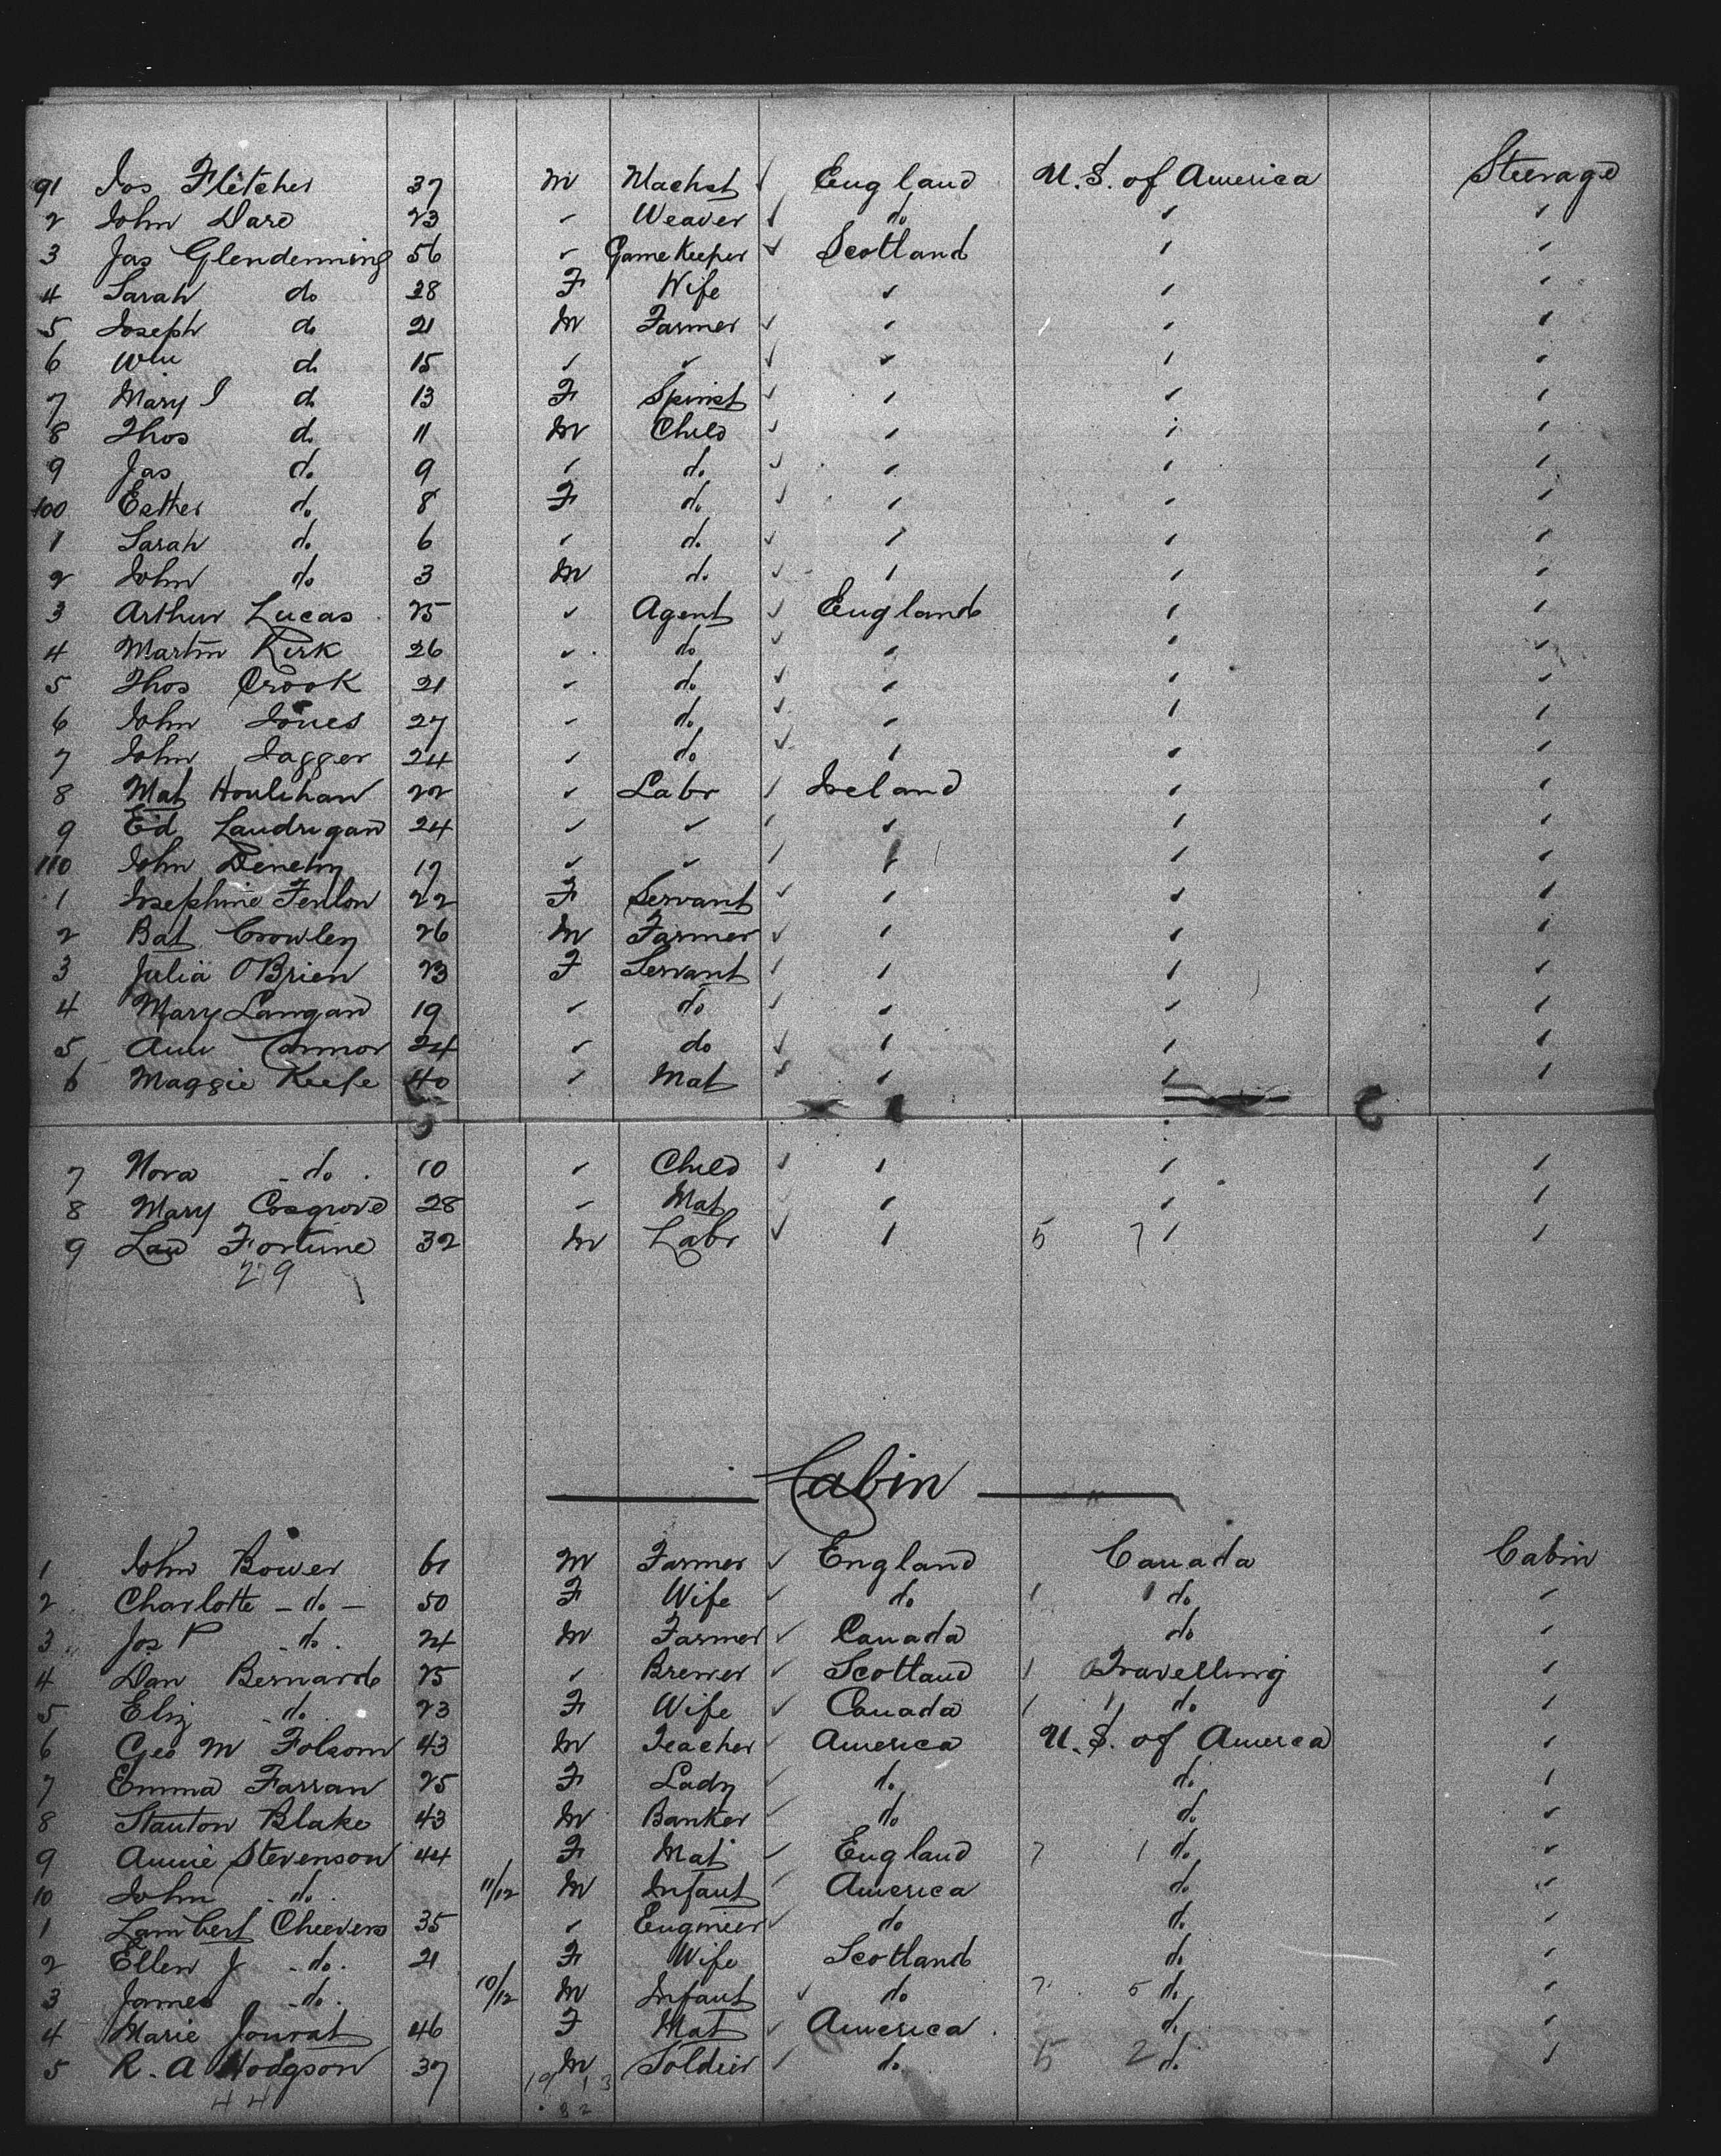 91 Jos Fletcher 37 M Machst ✓ England U.S. of America Steerage
2 John Dare 23 " Weaver ✓ do " "
3 Jas Glendenning 56 " Game Keeper ✓ Scotland " "
4 Sarah do 28 F Wife " " "
5 Joseph do 21 M Farmer ✓ " " "
6 Wm do 15 " " ✓ " " "
7 Mary I do 13 F Spinst ✓ " " "
8 Thos do 11 M Child ✓ " " "
9 Jas do 9 " do ✓ " " "
100 Esther do 8 F do ✓ " " "
1 Sarah do 6 " do ✓ " " "
2 John do 3 M do ✓ " " "
3 Arthur Lucas 25 " Agent ✓ England " "
4 Martin Kirk 26 " do ✓ " " "
5 Thos Crook 21 " do ✓ " " "
6 John Jones 27 " do ✓ " " "
7 John Jagger 24 " do ✓ " " "
8 Mat Houlihan 22 " Labr ✓ Ireland " "
9 Ed Landrigan 24 " " ✓ " " "
110 John Denehy 17 " " ✓ " " "
1 Josephine Fenlon 22 F Servant ✓ " " "
2 Bat Crowley 26 M Farmer ✓ " " "
3 Julia O'Brien 23 F Servant ✓ " " "
4 Mary Langan 19 " do ✓ " " "
5 Ann Connor 24 " do ✓ " " "
6 Maggie Keefe 40 " Mat ✓ " " "
7 Nora do 10 " Child ✓ " " "
8 Mary Cosgrove 28 " Mat ✓ " " "
9 Law Fortune 32 M Labr ✓ " 5 7 " "
29
Cabin
1 John Bower 61 M Farmer ✓ England Canada Cabin
2 Charlotte - do - 50 F Wife ✓ do 1 1 do "
3 Jos P do 24 M Farmer ✓ Canada do "
4 Dan Bernard 25 " Brewer ✓ Scotland 1 Travelling "
5 Eliz do 23 F Wife ✓ Canada 1 1 do "
6 Geo M Folsom 43 M Teacher ✓ America U.S. of America "
7 Emma Farran 25 F Lady ✓ do do "
8 Stanton Blake 43 M Banker ✓ do do "
9 Annie Stevenson 44 F Mat ✓ England 7 1 do "
10 John do 11/12 M Infant ✓ America do "
1 Lambert Cheevers 35 " Engineer ✓ do do "
2 Ellen J do 21 F Wife Scotland do "
3 James do 10/12 M Infant ✓ do 7 5 do "
4 Marie Jouvat 46 F Mat ✓ America do "
5 R. A Hodgson 37 M Soldier ✓ do 5 2 do "
44 19 13
32